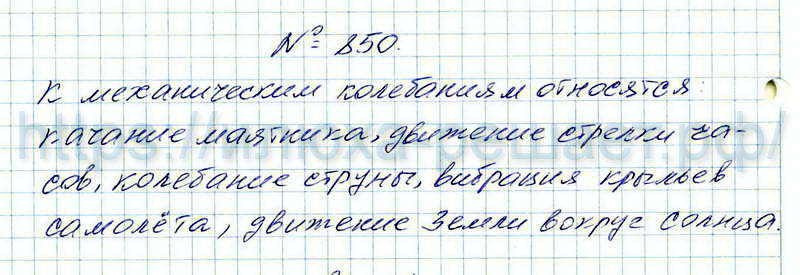 № 850.
К механическим колебаниям относятся:
качание маятника, движение стрелки ча-
сов, колебание струны, вибрация крыльев
самолёта, движение Земли вокруг солнца.